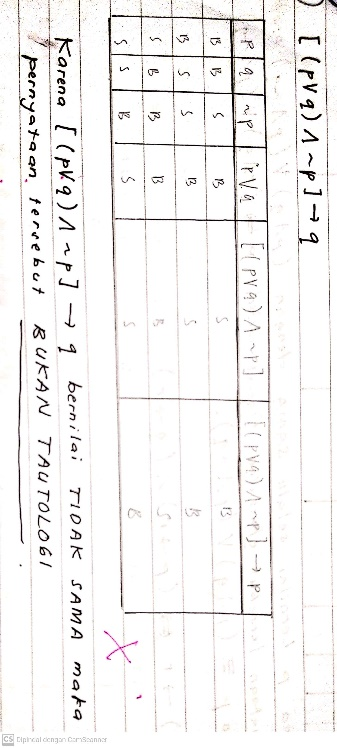 ) [(p∨q)∧~p]→q
p q ~p p∨q [(p∨q)∧~p] [(p∨q)∧~p]→p
B B S B S B
B S S B S B
S B B B B S
S S B S S B
Karena [(p∨q)∧~p]→q bernilai TIDAK SAMA maka
pernyataan tersebut BUKAN TAUTOLOGI.
CS Dipindai dengan CamScanner